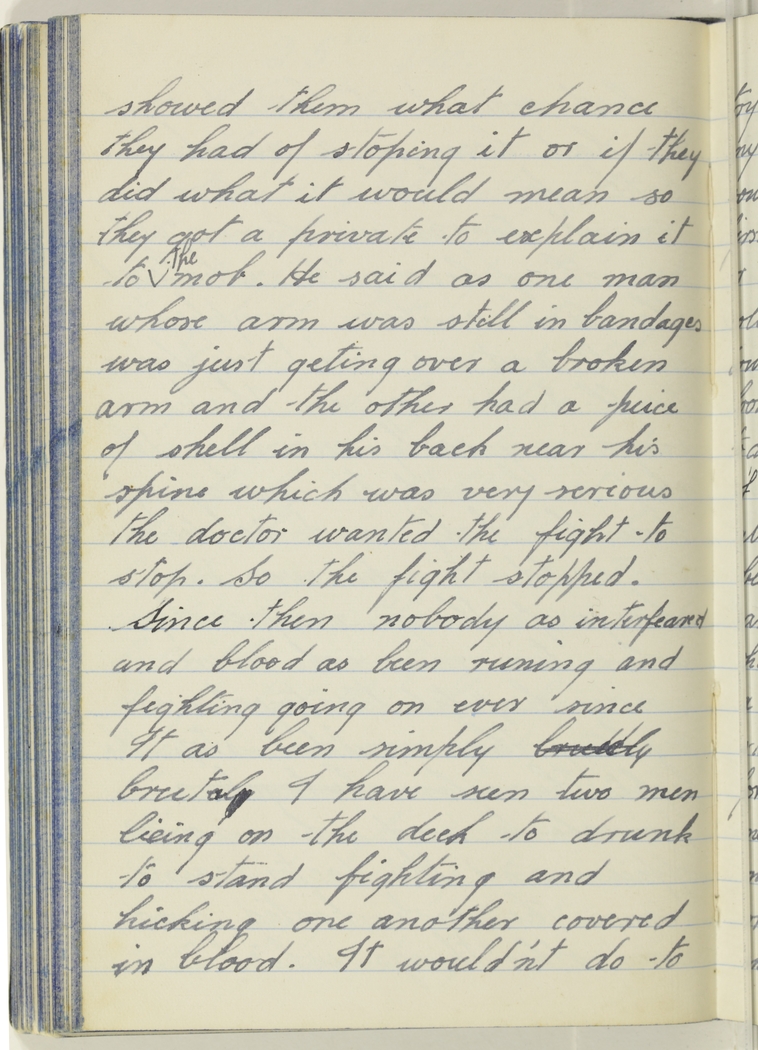 showed them what chance
they had of stoping it or if they
did what it would mean so
they got a private to explain it
to the mob. He said as one man
whose arm was still in bandages
was just geting over a broken
arm and the other had a peice
of shell in his back near his
spine which was very serious
the doctor wanted the fight to
stop. So the fight stopped.
Since then nobody as interfeard
and blood as been runing and
fighting going on ever since
It as been simply
brutaly I have seen two men
lieing on the deck to drunk
to stand fighting and
kicking one another covered
in blood. It wouldn't do to